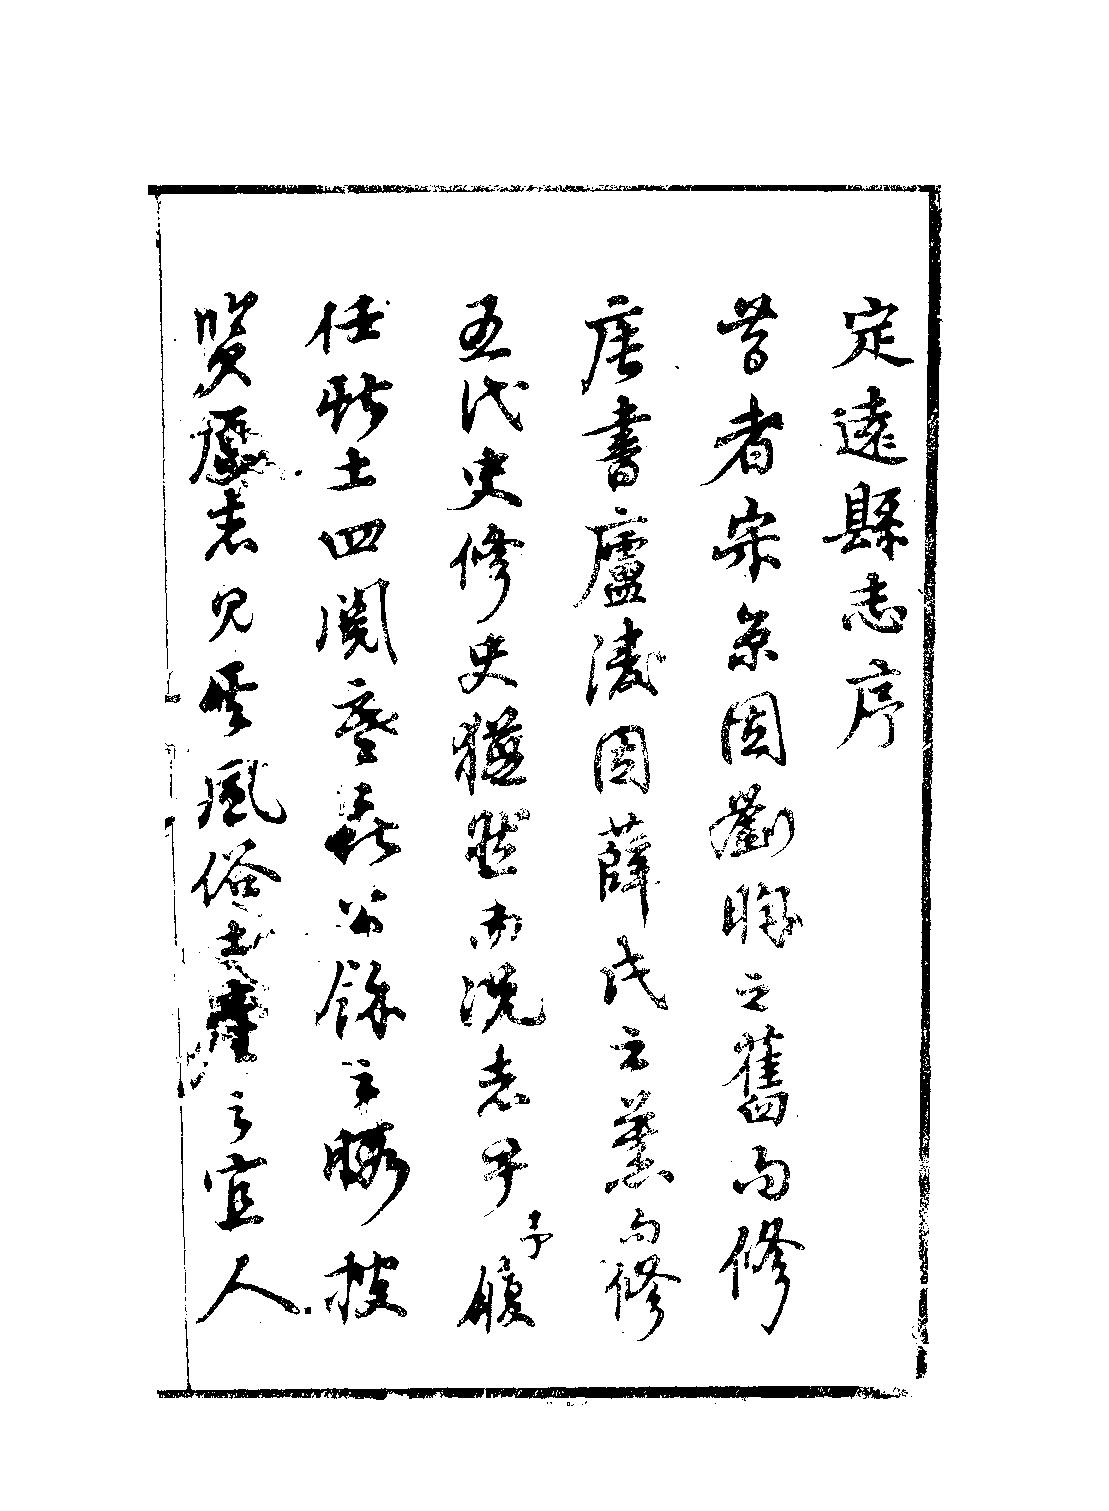 定遠縣志序
昔者宋景因劉昫之舊而修
唐書廬陵因薛氏之而修
五代史修史猶然而況志乎予履
任斯土四閱歲矣公餘之暇披
覽舊志見風俗土產之宜人